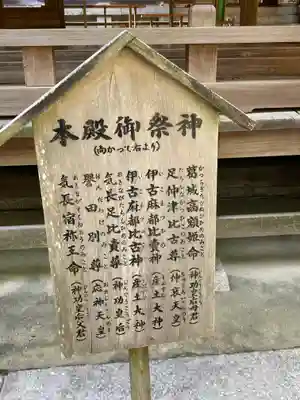 本殿御祭神
(向かつて右より)
葛城高額姫命（神功皇后母君）
足仲津比古尊（仲哀天皇）
伊古麻都比賣神（産土大神）
伊古麻都比古神（産土大神）
気長足比賣尊（神功皇后）
譽田別尊（応神天皇）
気長宿祢王命（神功皇后父君）